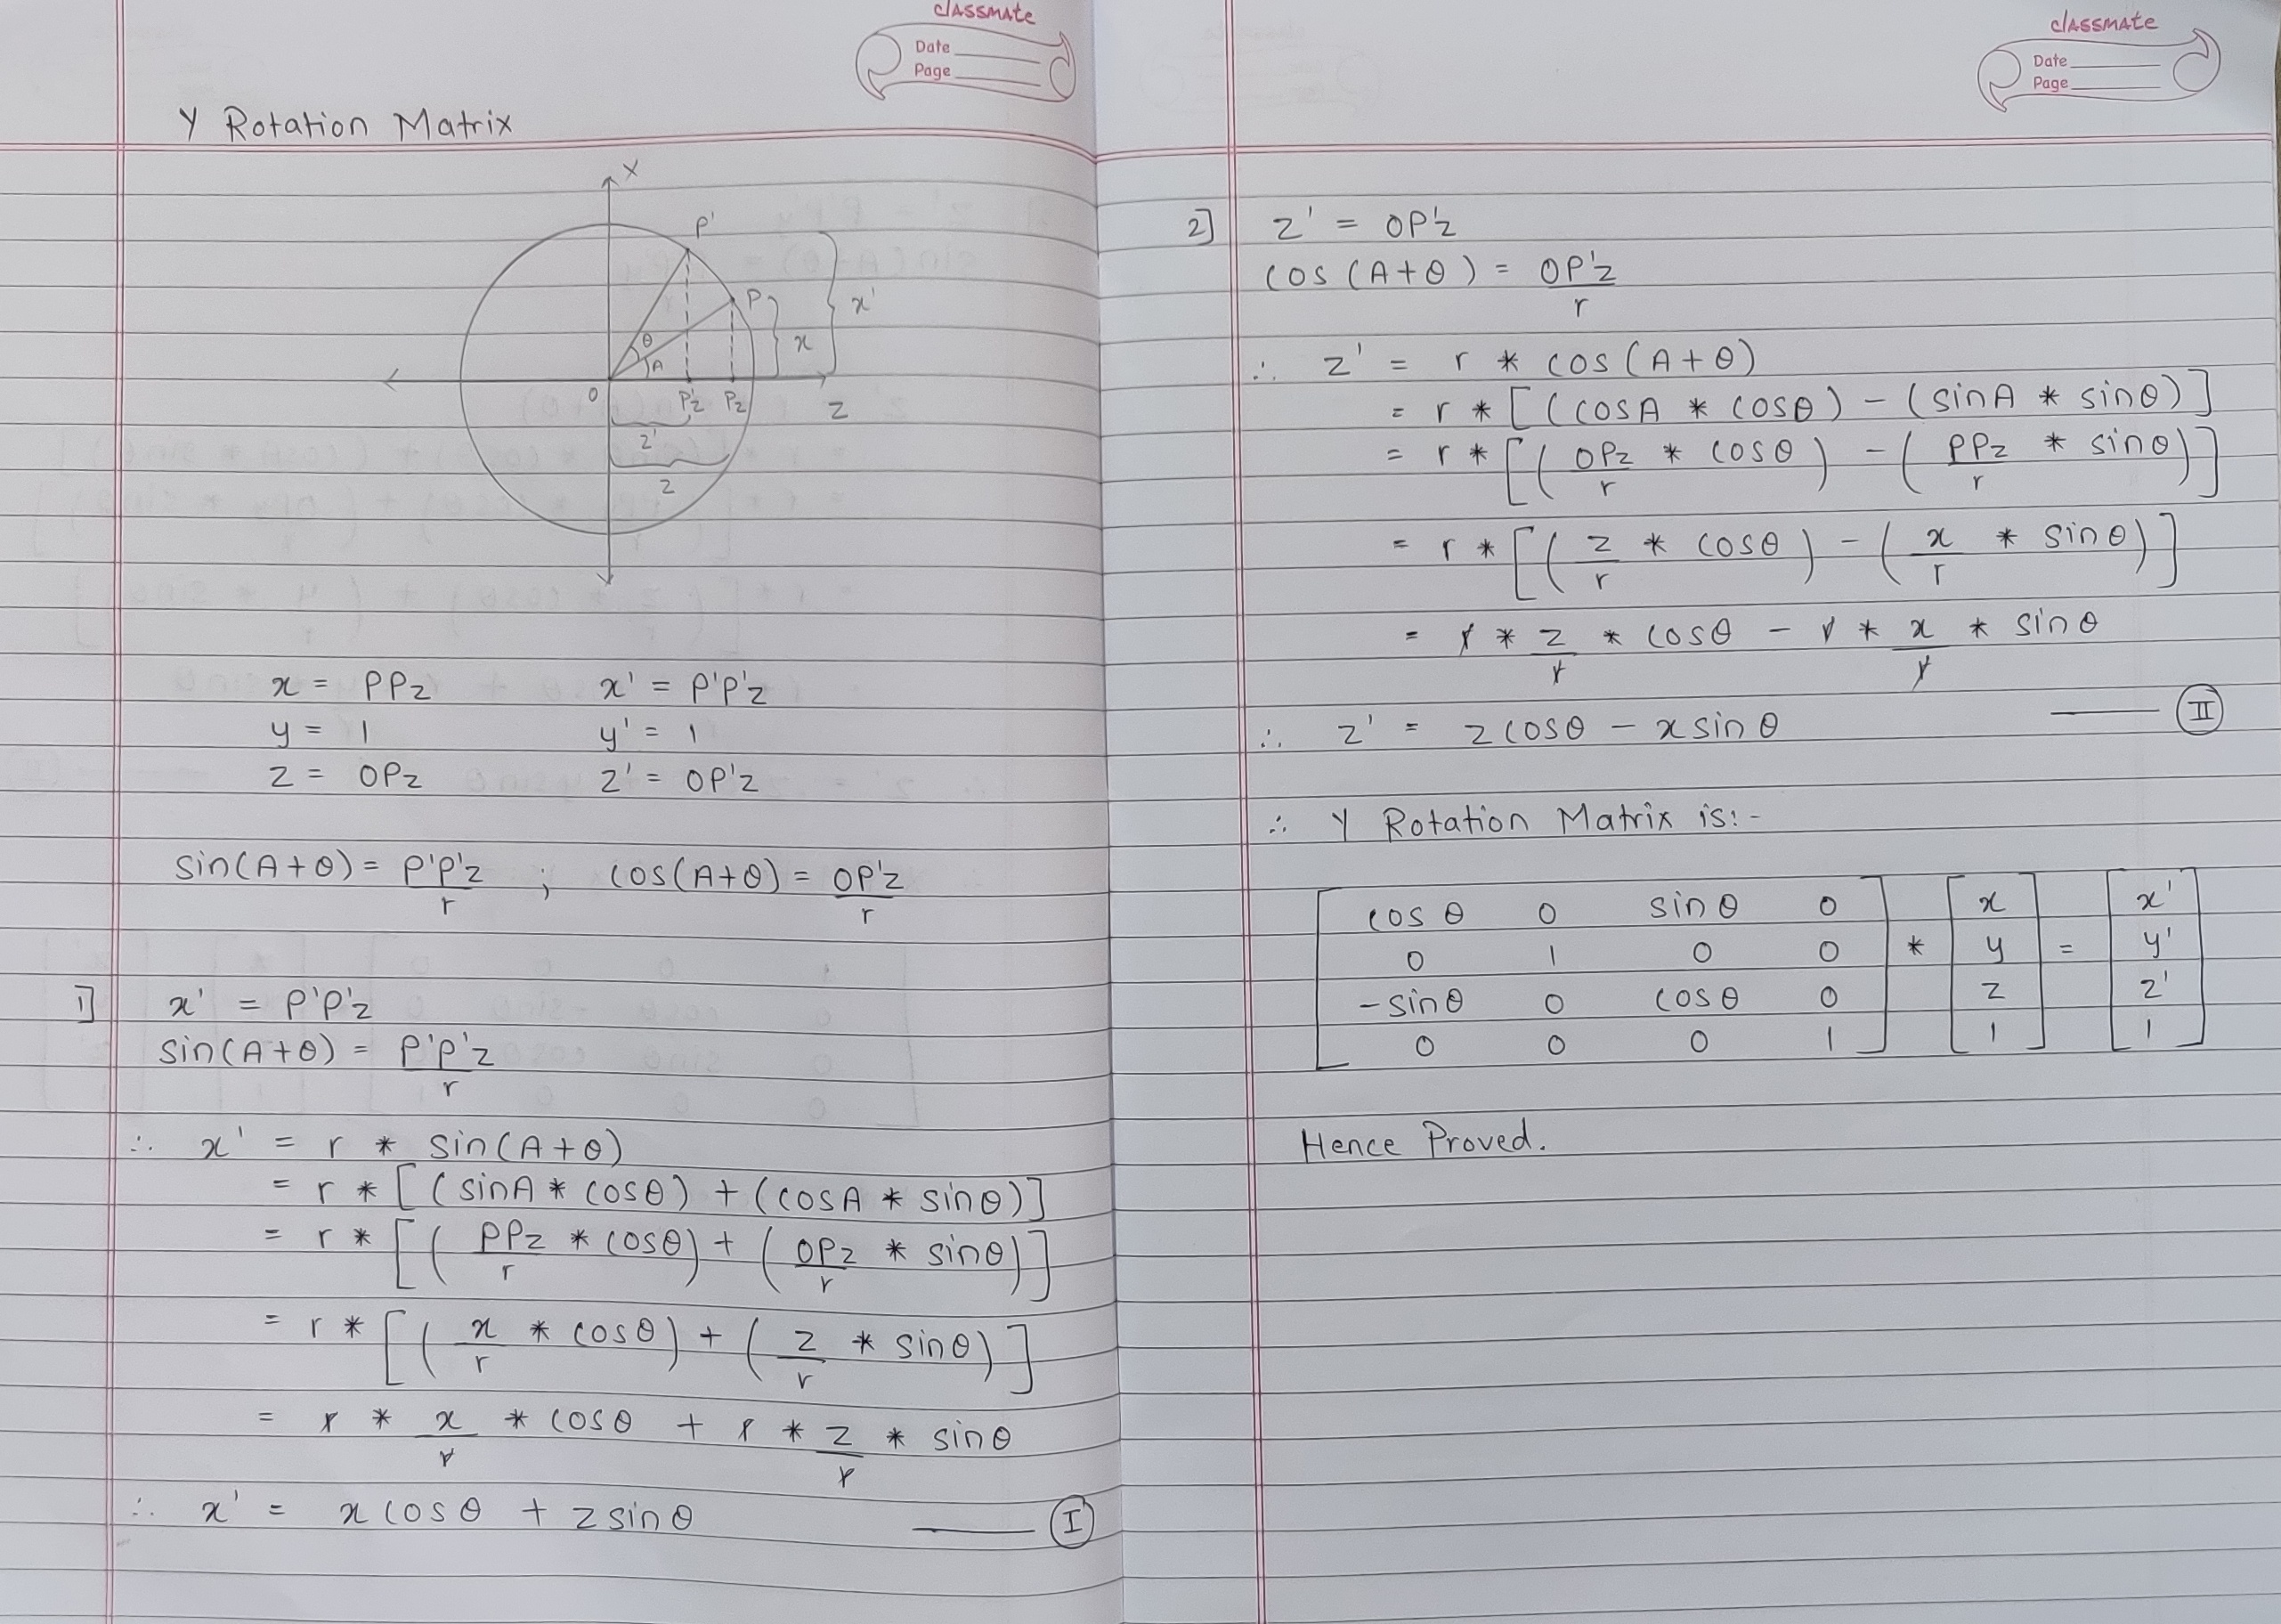 classmate
Date
Page
Y Rotation Matrix
X
P'
P
x'
x
θ
A
O
P'z
Pz
Z
z'
z
x = PPz    x' = P'P'z
y = 1    y' = 1
z = OPz    z' = OP'z
sin(A+θ) = P'P'z/r ; cos(A+θ) = OP'z/r
1] x' = P'P'z
sin(A+θ) = P'P'z/r
∴ x' = r * sin(A+θ)
= r * [(sinA * cosθ) + (cosA * sinθ)]
= r * [(PPz/r * cosθ) + (OPz/r * sinθ)]
= r * [(x/r * cosθ) + (z/r * sinθ)]
= r * x/r * cosθ + r * z/r * sinθ
∴ x' = x cosθ + z sinθ —— I
classmate
Date
Page
2] z' = OP'z
cos(A+θ) = OP'z/r
∴ z' = r * cos(A+θ)
= r * [(cosA * cosθ) - (sinA * sinθ)]
= r * [(OPz/r * cosθ) - (PPz/r * sinθ)]
= r * [(z/r * cosθ) - (x/r * sinθ)]
= r * z/r * cosθ - r * x/r * sinθ
∴ z' = z cosθ - x sinθ —— II
∴ Y Rotation Matrix is:-
[ cosθ 0 sinθ 0 ] [ x ] [ x' ]
[ 0 1 0 0 ] * [ y ] = [ y' ]
[ -sinθ 0 cosθ 0 ] [ z ] [ z' ]
[ 0 0 0 1 ] [ 1 ] [ 1 ]
Hence Proved.